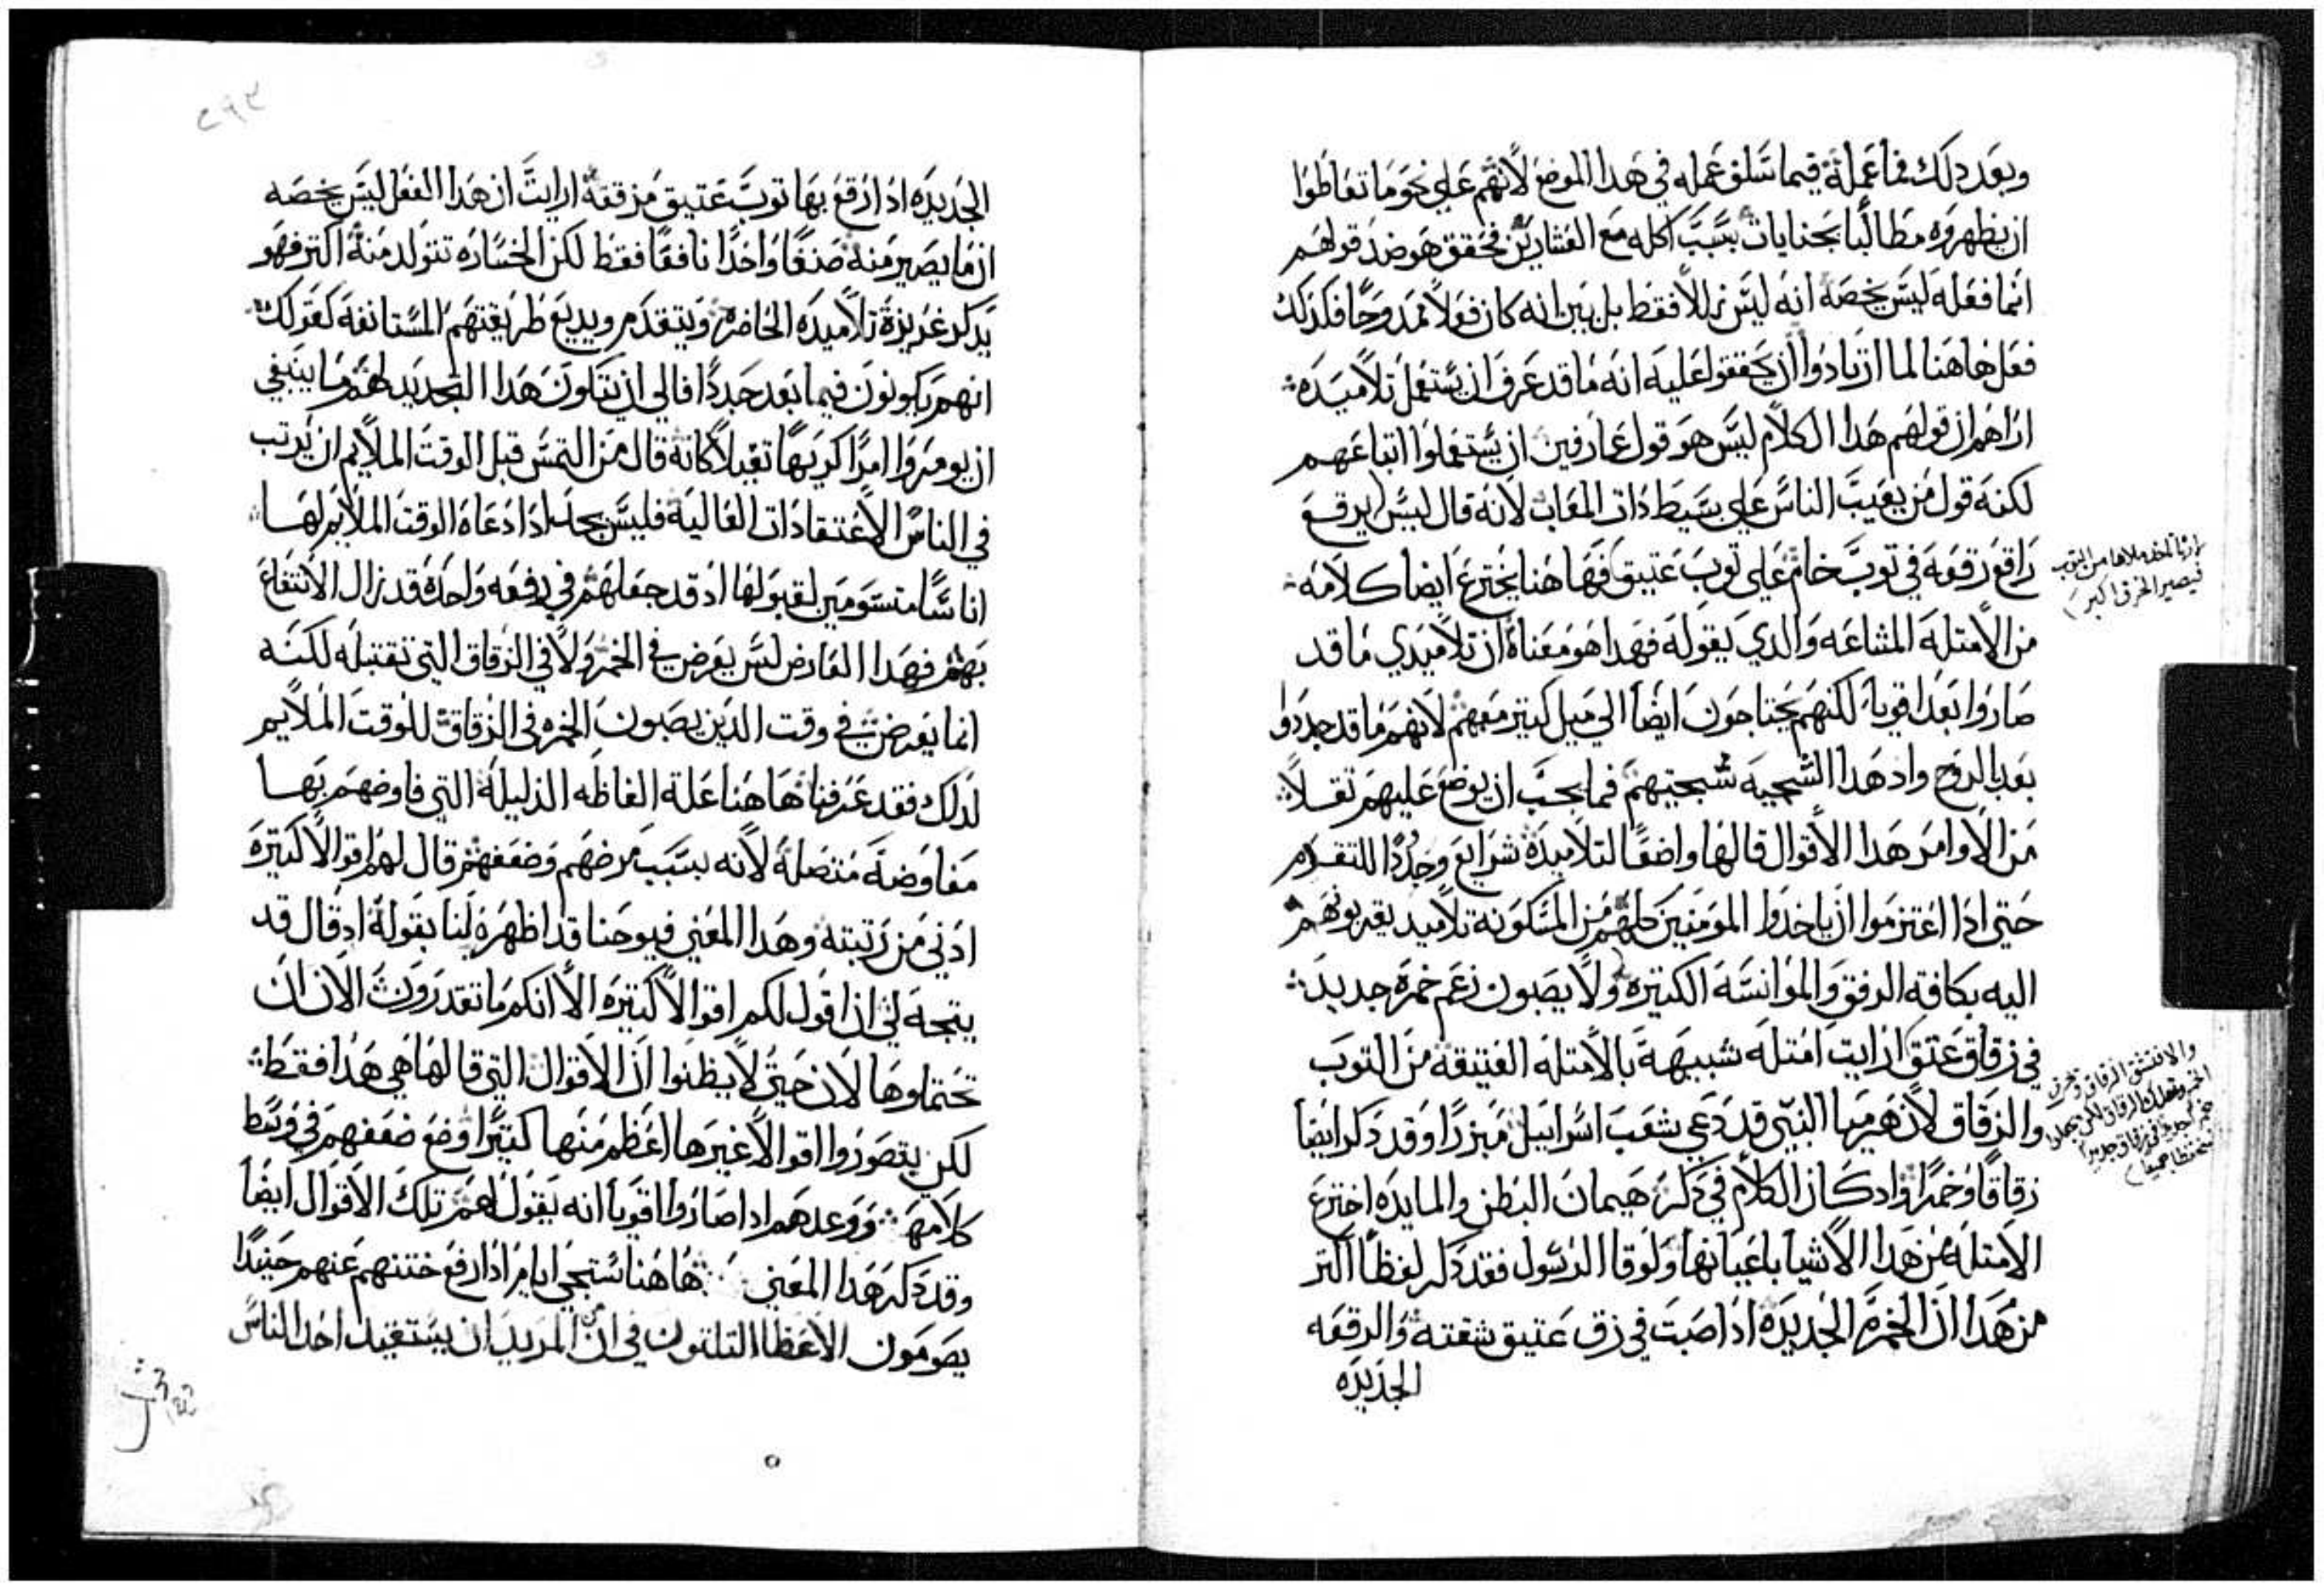 وبعد دلك فما عمله فيما سلف عمله في هدا الموضع لانهم علي نحو ما تعاطوا
ان يظهروه مطالبًا بجنايات بسبب اكله مع العشارين فحقق هو ضد قولهم
انما فعله ليس يخصه انه ليس زللاً فقط بل بين انه كان فعلاً ممدوحًا فكدلك
فعل هاهنا لما ارتادوا ان يحققوا عليه انه ما قد عرف ان يستعمل تلاميده
اراهم ان قولهم هدا الكلام ليس هو قول عارفين ان يستعملوا اتباعهم
لكنه قول من يعيب الناس علي بسيط دات المعاب لانه قال ليس يرقع
راقع رقعه في توب خام علي توب عتيق فهاهنا يخترع ايضا كلامه
من الامتله المشاعه والدي يقوله فهدا هو معناه ان تلاميدي ما قد
صاروا بعد اقويا لكنهم يحتاجون ايضًا الي ميل كتير معهم لانهم ما قد جددوا
بعد بالروح واد هدا السجيه سجيتهم فما يجب ان يوضع عليهم تقلاً
من الاوامر هدا الاقوال قالها واضعًا لتلاميده شرايع وحدودًا للتقدم
حتي ادا اعتزموا ان ياخدوا المومنين كلهم من المسكونه تلاميد يقربونهم
اليه بكافه الرفق والموانسه الكتيره ولا يصبون زعم خمره جديده
في زقاق عتق ارايت امتله شبيهة بالامتله العتيقه من التوب
والزقاق لان هرميا النبي قد دعي شعب اسراييل ميزرًا وقد دكر ايضا
زقاقًا وخمرًا واد كان الكلام في دكر هيمان البطن والمايده اخترع
الامتله من هدا الاشيا باعيانها ولوقا الرسول فقد دكر لفظًا اكتر
من هدا ان الخمره الجديده ادا صبت في زق عتيق شقته والرقعه
الجديده
فيصير الخرق اكبر
الجديده ادا رقع بها توب عتيق مزقته ارايت ان هدا الفعل ليس يخصه
ان ما يصير منه صنفًا واحدًا نافعًا فقط لكن الخساره تتولد منه اكتر فهو
يدكر غريزة تلاميده الحاضره ويتقدم ويديع طريقتهم المستانفه كقولك
انهم يكونون فيما بعد جددًا فالي ان يتكون هدا التجديد لهم ما ينبغي
ان يومروا امرًا كريهًا تقيلاً كانه قال من التمس قبل الوقت الملايم ان يرتب
في الناس الاعتقادات العاليه فليس يجد ادا دعاه الوقت الملايم لها
اناسًا متسومين لقبولها اد قد جعلهم في دفعه واحده قد زال الانتفاع
بهم فهدا العارض ليس يعرض في الخمر ولا في الزقاق التي تقتبله لكنه
انما يعرض في وقت الدين يصبون الخمره في الزقاق للوقت الملايم
لدلك فقد عرفنا هاهنا علة الفاظه الدليله التي فاوضهم بها
مفاوضه متصله لانه بسبب مرضهم وضعفهم قال لهم اقوالاً كتيره
ادني من رتبته وهدا المعني فيوحنا قد اظهره لنا بقوله اد قال قد
يتجه لي ان اقول لكم اقوالاً كتيره الا انكم ما تقدرون الان ان
تحتملوها لان حتي لا يظنوا ان الاقوال التي قالها هي هدا فقط
لكن يتصوروا اقوالاً غيرها اعظم منها كتيرًا وضع ضعفهم في وسط
كلامه ووعدهم ادا صاروا اقويا انه يقول لهم تلك الاقوال ايضًا
وقد دكر هدا المعني هاهنا ستجي ايام ادا رفع ختنهم عنهم حينيدًا
يصومون الاعظا التلتون في ان المريد ان يستقيد احد الناس